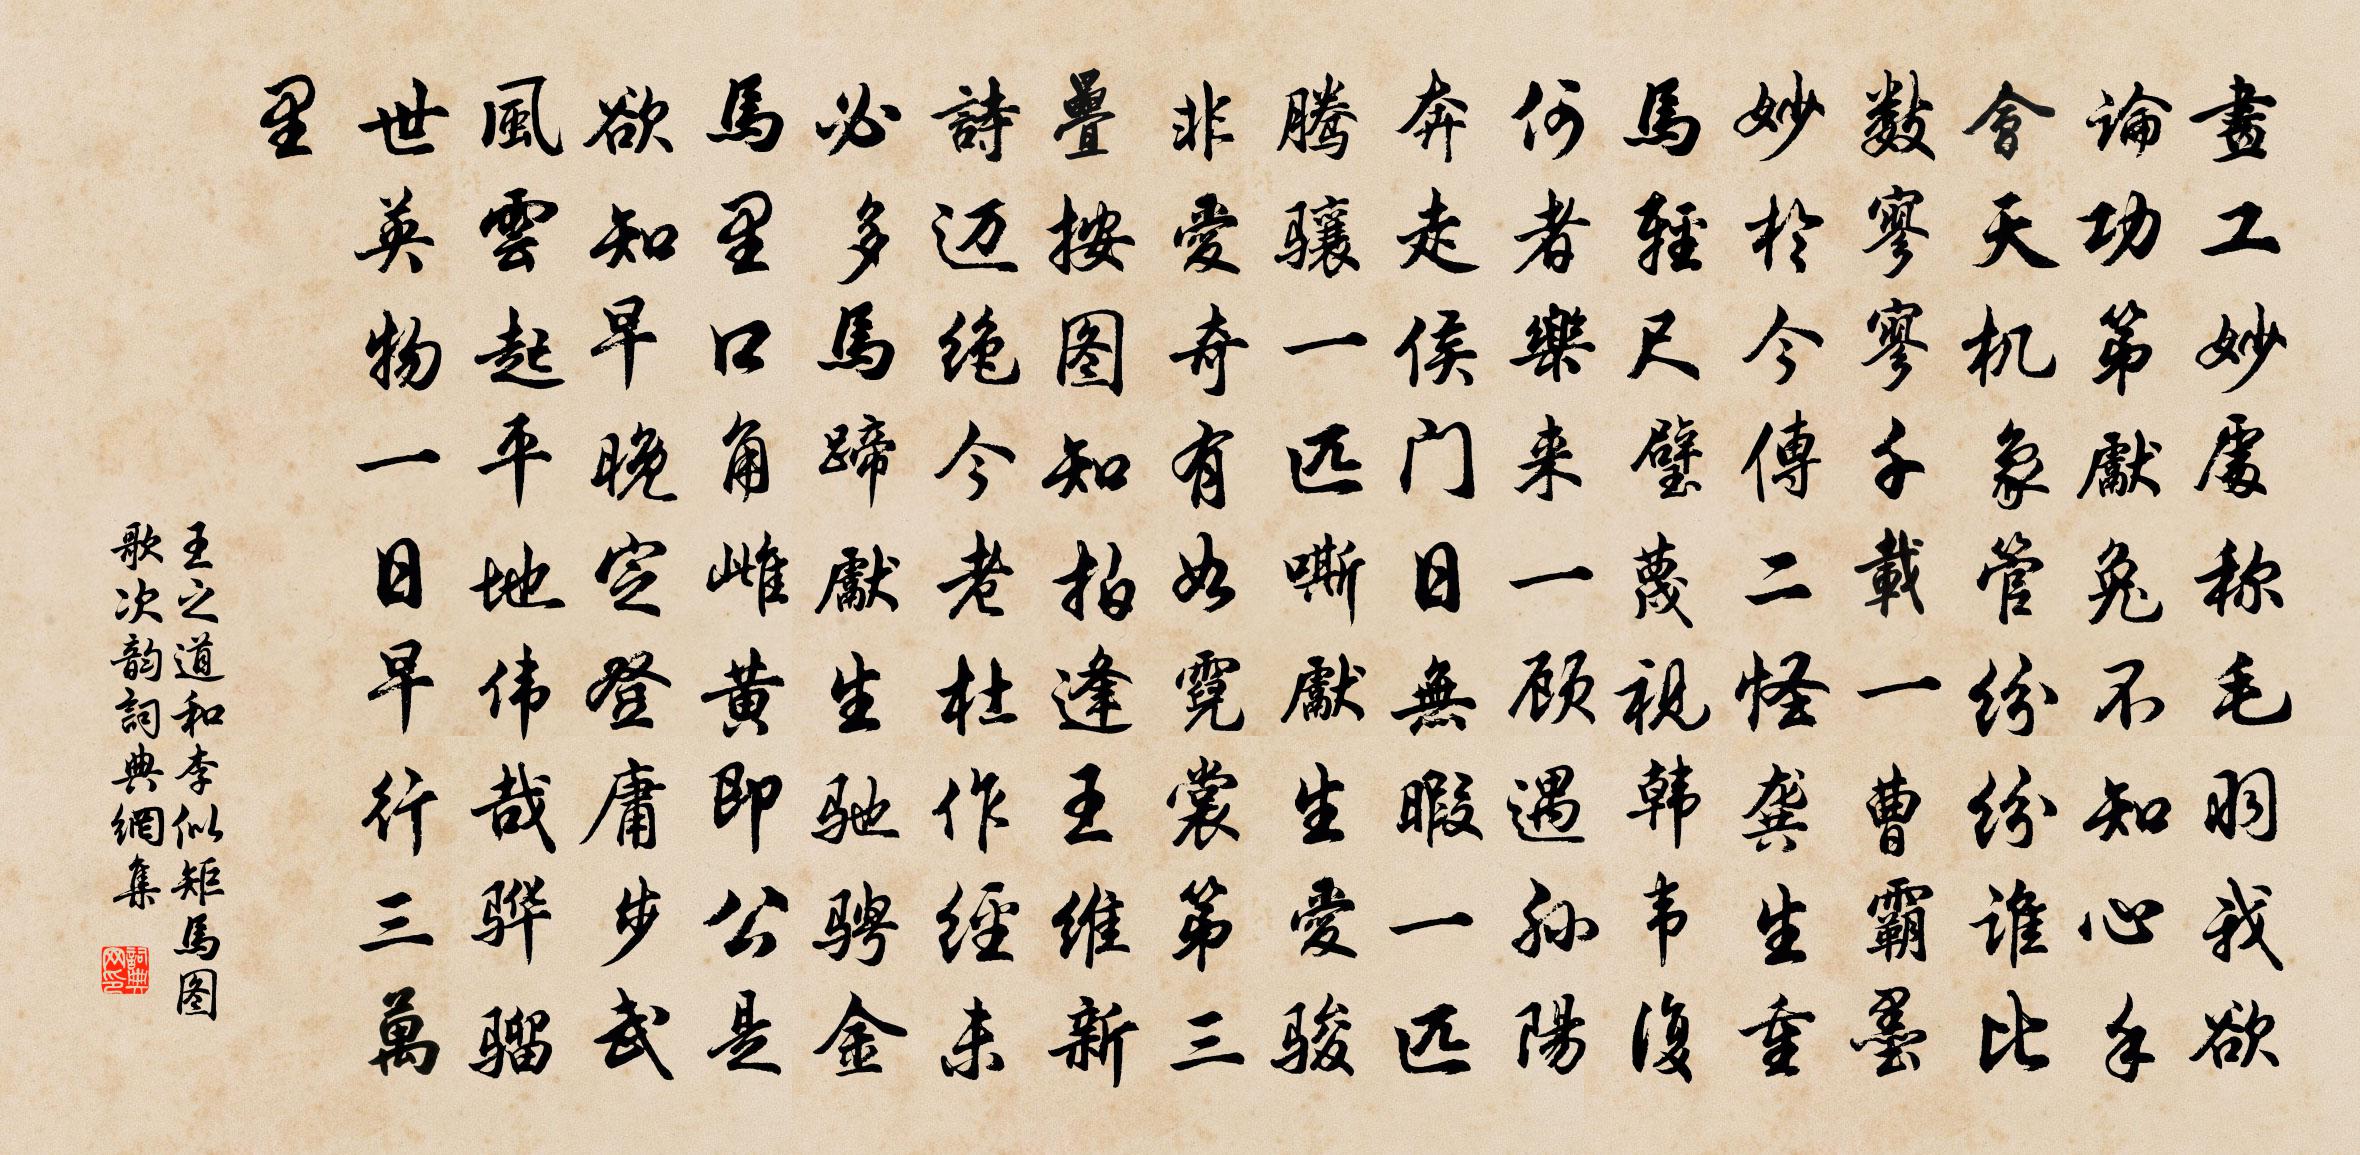 畫工妙處称毛羽我欲
論功第獻兔不知心手
會天机象管纷纷谁比
数寥寥千載一曹霸墨
妙於今傳二怪龚生重
馬輕尺璧蔑視韩韦復
何者樂来一顾遇孙陽
奔走侯门日無暇一匹
腾骧一匹嘶獻生愛骏
非愛奇有如霓裳第三
疊按图知拍逢王维新
詩迈绝今老杜作經未
必多馬蹄獻生驰骋金
馬里口角雌黄即公是
欲知早晚定登庸步武
風雲起平地伟哉骅骝
世英物一日早行三萬
里
王之道和李似矩馬图
歌次韵詞典網集
詞典网印